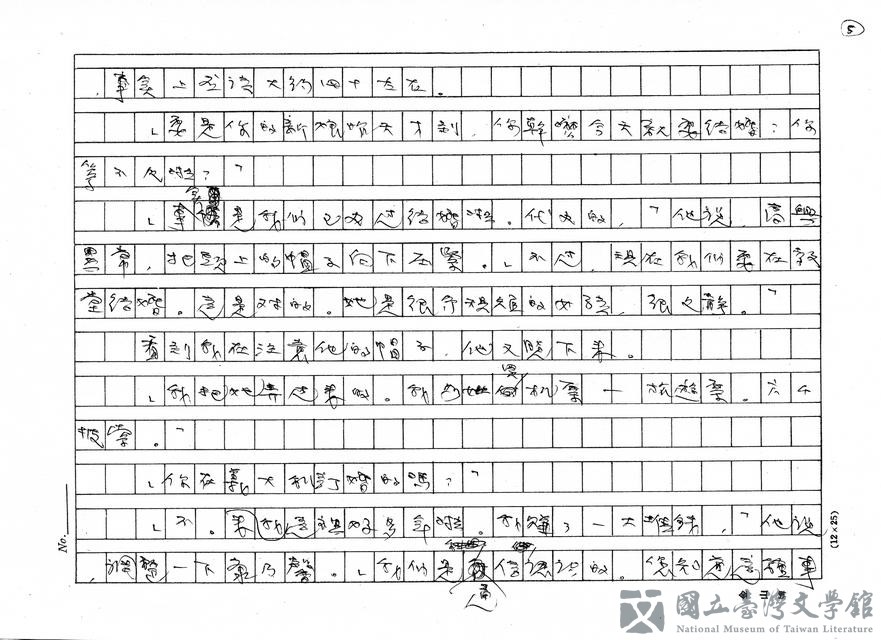 5
，事實上應該大約四十左右。
「要是你的新娘昨天才到，你幹嘛今天就要結婚？你
等不及啦？」
「事實是我們已經結婚啦。代父的，」他說，
異常，把頭上的帽子向下壓緊。「不過，現在我們要在教
堂結婚。這是對的。她是很 的女孩，很文靜。」
看到我在注意他的帽子，他又脫下來。
「我把她弄過來的。我 買機票一 旅遊票。六千
披索。」
「你在義大利訂婚的嗎？」
「不。我 好多年啦。我賺了一大堆錢，」他說
，調整一下 聲。「我們是 信認識的。您知道這種事
No.
(12×25)
國立臺灣文學館
National Museum of Taiwan Literature